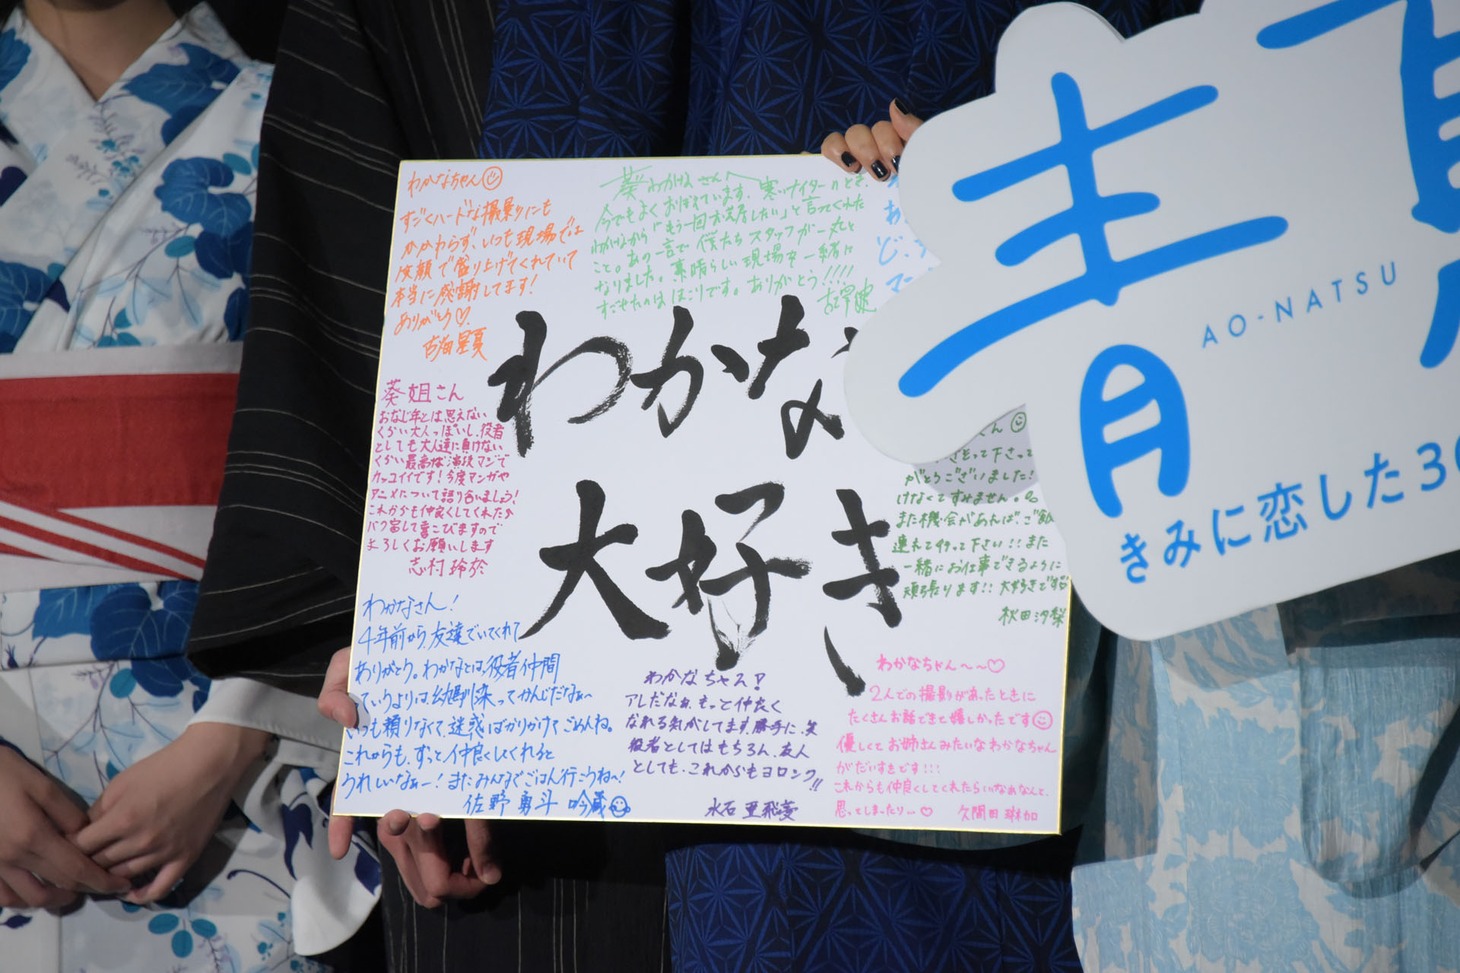 わかなちゃん
すごくハードな撮影にも
かかわらず、いつも現場では
笑顔で盛り上げてくれていて
本当に感謝してます!
ありがとう♡
古畑 星夏
葵 わかなさんへ
今でもよくおぼえています。寒いナイターのとき、
わかなから「もう一回お芝居したい」と言ってくれた
こと。あの一言で僕たちスタッフが一丸と
なりました。素晴らしい現場を一緒に
すごせたのはほこりです。ありがとう!!!!
わかな
大好き
葵姐さん
おなじ年とは思えない
くらい大人っぽいし、役者
としても大人達に負けない
くらい最高な演技マジで
カッコイイです!今度マンガや
アニメについて語り合いましょう!
これからも仲良くしてくれたら
バク宙して喜こびますので
よろしくお願いします
志村 玲於
わかなさん!
4年前から、友達でいてくれて
ありがとう。わかなとは、役者仲間
っていうよりは、幼馴染ってかんじだなぁ〜
いつも頼りなくて、迷惑ばかりかけてごめんね。
これからも、ずっと仲良くしてくれると
うれしいなぁー!またみんなでごはん行こうねー!
佐野 勇斗 吟蔵
わかなちゃん!
アレだなぁ、もっと仲良く
なれる気がしてます、勝手に、笑
役者としてはもちろん、友人
としても、これからもヨロシク!!
水石 亜飛夢
わかなちゃん〜〜♡
2人での撮影があったときに
たくさんお話できて嬉しかったです
優しくてお姉さんみたいなわかなちゃん
がだいすきです!!!
これからも仲良くしてくれたらいいなぁなんて、
思ってしまったりー♡
久間田 琳加
がとうございました!
けなくてすみません。
また機会があれば、ご飯
連れて行って下さい!!また
一緒にお仕事できるように
頑張ります!!大好きです
秋田 汐梨
青夏
AO-NATSU
きみに恋した30